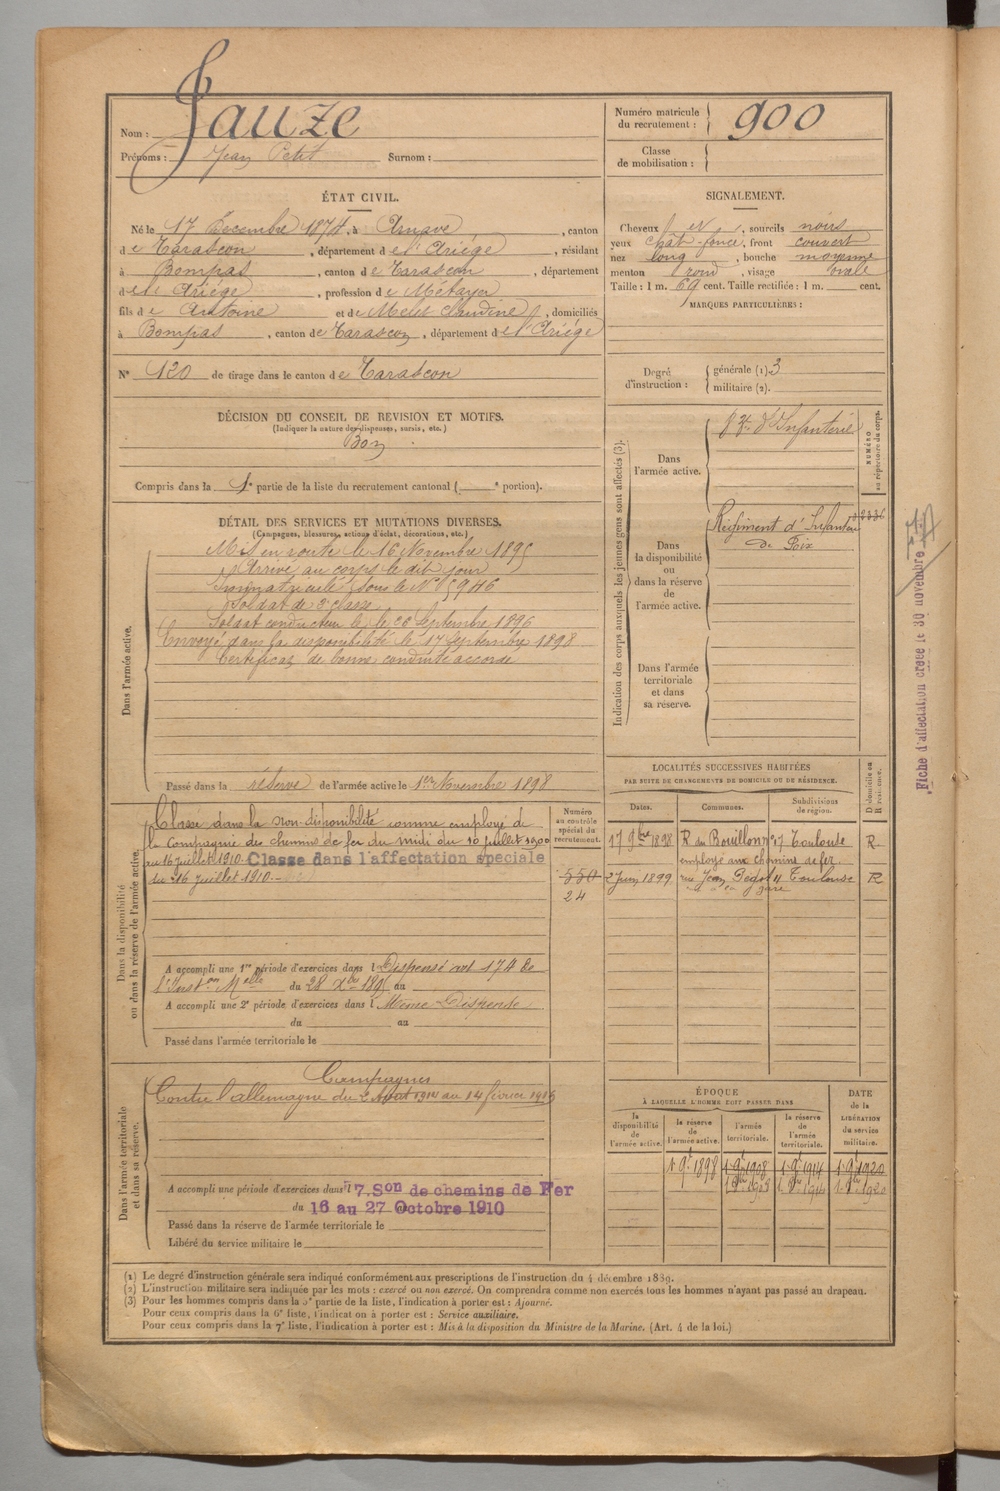 Nom : Jauze
Prénoms : Jean Petit Surnom :
Numéro matricule du recrutement : 900
Classe de mobilisation :
ÉTAT CIVIL.
Né le 17 Décembre 1874, à Arnave, canton
de Tarascon, département de l'Ariége, résidant
à Bompas, canton de Tarascon, département
de l'Ariége, profession de Métayer
fils de Antoine et de Melet Claudine, domiciliés
à Bompas, canton de Tarascon, département de l'Ariége
N° 120 de tirage dans le canton de Tarascon
DÉCISION DU CONSEIL DE REVISION ET MOTIFS.
(Indiquer la nature des dispenses, sursis, etc.)
Bon
Compris dans la 1e partie de la liste du recrutement cantonal ( e portion).
SIGNALEMENT.
Cheveux et, sourcils noirs
yeux chât foncé, front couvert
nez long, bouche moyenne
menton rond, visage ovale
Taille : 1 m. 69 cent. Taille rectifiée : 1 m. cent.
MARQUES PARTICULIÈRES :
Degré d'instruction : générale (1). 3
militaire (2).
DÉTAIL DES SERVICES ET MUTATIONS DIVERSES.
(Campagnes, blessures, actions d'éclat, décorations, etc.)
Dans l'armée active.
Mis en route le 16 Novembre 1895
Arrivé au corps le dit jour
Immatriculé sous le N° 5946
Soldat de 2e classe
Soldat conducteur le 26 Septembre 1896
Envoyé dans la disponibilité le 17 Septembre 1898
Certificat de bonne conduite accordé
Passé dans la réserve de l'armée active le 1er Novembre 1898
Indication des corps auxquels les jeunes gens sont affectés (3).
NUMÉRO au répertoire du corps.
Dans l'armée active.
d'Infanterie
Dans la disponibilité ou dans la réserve de l'armée active.
Régiment d'Infanterie
de Foix
Dans l'armée territoriale et dans sa réserve.
Fiche d'affectation créée le 30 novembre
LOCALITÉS SUCCESSIVES HABITÉES
PAR SUITE DE CHANGEMENTS DE DOMICILE OU DE RÉSIDENCE.
D domicile ou R résidence.
Dates. Communes. Subdivisions de région.
17 9bre 1898 R. du Bouillonn 17 Toulouse R.
employé aux chemins de fer.
2 Juin 1899 rue Jean Bégot 4 Toulouse R
Dans la disponibilité ou dans la réserve de l'armée active.
Numéro au contrôle spécial du recrutement.
Classé dans la non-disponibilité comme employé de
la Compagnie des chemins de fer du midi du 10 juillet 1900
au 16 juillet 1910. Classé dans l'affectation spéciale
du 16 juillet 1910.
550
24
A accompli une 1re période d'exercices dans l Dispensé art 174 de
l'Inston Melle du 28 Xbre 1895 au
A accompli une 2e période d'exercices dans l Même Dispense
du au
Passé dans l'armée territoriale le
Dans l'armée territoriale et dans sa réserve.
Campagnes
Contre l'allemagne du 2 Août 1914 au 14 février 1916
A accompli une période d'exercices dans l 7. Son de chemins de Fer
du 16 au 27 Octobre 1910
Passé dans la réserve de l'armée territoriale le
Libéré du service militaire le
ÉPOQUE
À LAQUELLE L'HOMME DOIT PASSER DANS
DATE de la LIBÉRATION du service militaire.
la disponibilité de l'armée active. la réserve de l'armée active. l'armée territoriale. la réserve de l'armée territoriale.
(1) Le degré d'instruction générale sera indiqué conformément aux prescriptions de l'instruction du 4 décembre 1889.
(2) L'instruction militaire sera indiquée par les mots : exercé ou non exercé. On comprendra comme non exercés tous les hommes n'ayant pas passé au drapeau.
(3) Pour les hommes compris dans la 5e partie de la liste, l'indication à porter est : Ajourné.
Pour ceux compris dans la 6e liste, l'indication à porter est : Service auxiliaire.
Pour ceux compris dans la 7e liste, l'indication à porter est : Mis à la disposition du Ministre de la Marine. (Art. 4 de la loi.)